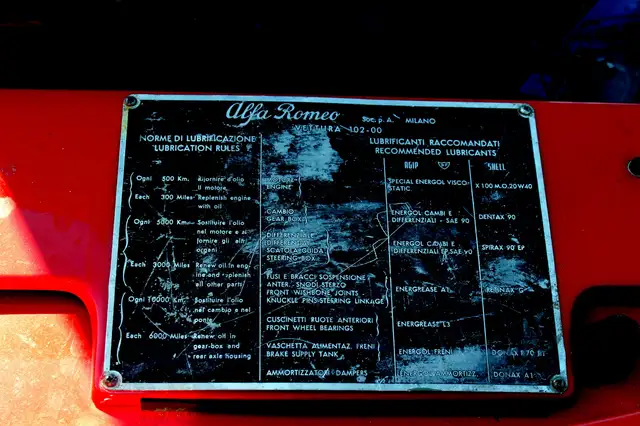 Alfa Romeo Soc. p. A. MILANO
VETTURA 102-00
NORME DI LUBRIFICAZIONE
LUBRICATION RULES
Ogni 500 Km. Rifornire d'olio
il motore
Each 300 Miles Replenish engine
with oil
Ogni 5000 Km. Sostituire l'olio
nel motore e ri-
fornire gli altri
organi
Each 3000 Miles Renew oil in engi-
ne and replenish
all other parts
Ogni 10000 Km. Sostituire l'olio
nel cambio e nel
ponte
Each 6000 Miles Renew oil in
gear-box and
rear axle housing
MOTORE
ENGINE
CAMBIO
GEAR BOX
DIFFERENZIALE
DIFFERENTIAL
SCATOLA GUIDA
STEERING BOX
FUSI E BRACCI SOSPENSIONE
ANTER. SNODI STERZO
FRONT WISHBONE JOINTS
KNUCKLE PINS-STEERING LINKAGE
CUSCINETTI RUOTE ANTERIORI
FRONT WHEEL BEARINGS
VASCHETTA ALIMENTAZ. FRENI
BRAKE SUPPLY TANK
AMMORTIZZATORI DAMPERS
LUBRIFICANTI RACCOMANDATI
RECOMMENDED LUBRICANTS
AGIP BP
SPECIAL ENERGOL VISCO-
STATIC
ENERGOL CAMBI E
DIFFERENZIALI - SAE 90
ENERGOL CAMBI E
DIFFERENZIALI EP SAE 90
ENERGREASE A1
ENERGREASE L3
ENERGOL FRENI
ENERGOL AMMORTIZZ.
SHELL
X 100 M.O. 20 W 40
DENTAX 90
SPIRAX 90 EP
RETINAX G
DONAX 70 R1
DONAX A1